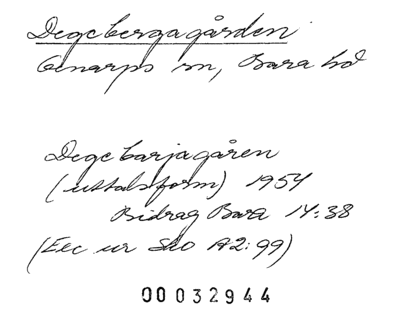 Degebergagården
Genarps sn, Bara hd
Degebarjagåren
(uttalsform) 1954
Bidrag Bara 14:38
(Exc ur SkO A2:99)
00032944